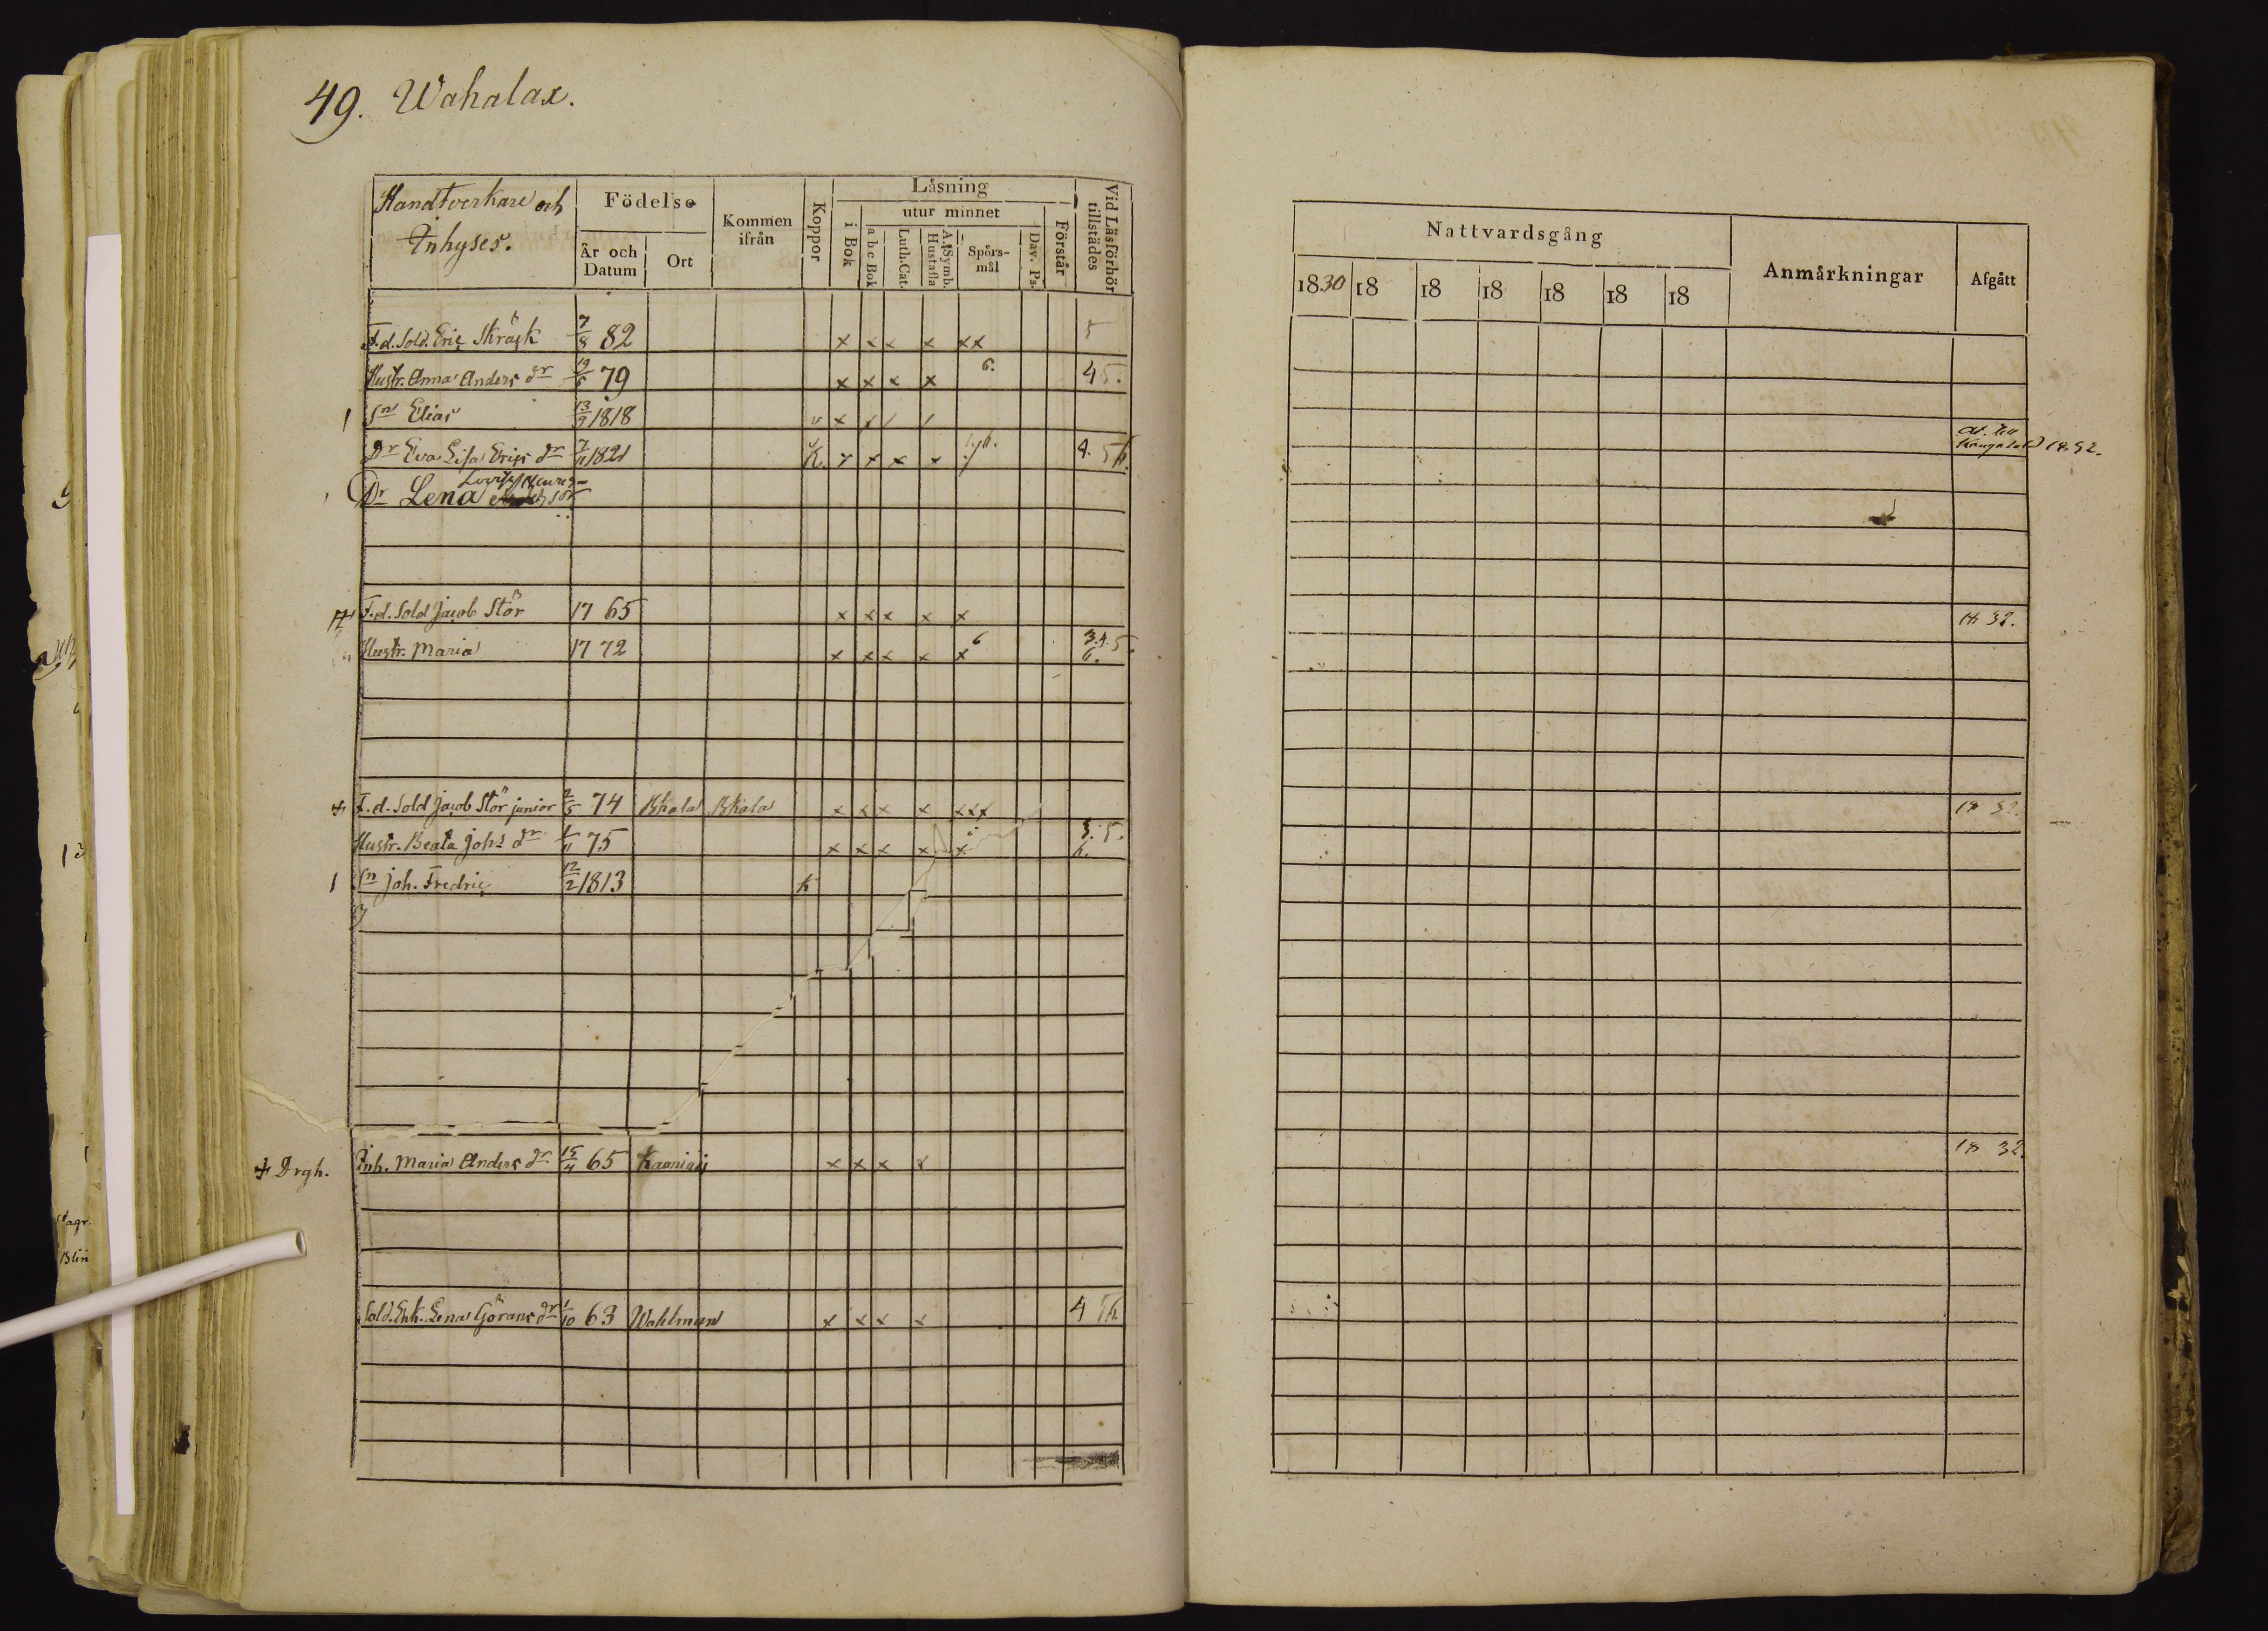 49. Wahalax.
Handtverkare och Inhyses.
Födelse
År och Datum
Ort
Kommen ifrån
Koppor
Läsning
i Bok
utur minnet
a b c Bok
Luth. Cat.
A. Symb. Hustafla
Spörs-mål
Dav. Ps.
Förstår
Vid Läsförhör tillstädes
Nattvardsgång
1830 18 18 18 18 18 18
Anmärkningar
Afgått
F.d. Sold. Eric Skräck 7/8 82 x x x x xx 5
Hustr. Anna Anders dr 19/5 79 x x x x 6. 4 5.
1 Sn Elias 13/9 1818 v x / / /
Kangasala 1832.
Dr Eva Lisa Erics dr 7/11 1821 K. x x x x 4. 5 6.
Dr Lena
F.d. Sold Jacob Stör 17 65 x x x x x 18 32.
Hustr. Maria 17 72 x x x x x 6 3.4.5. 6.
F.d. Sold Jacob Stör junior 2/5 74 Bkala Bkala x x x x xxx 18 32.
Hustr. Beata Johs dr 1/11 75 x x x x x 3. 5. 6.
1 Sn Joh. Fredric 12/2 1813 k
Drgh. Inh. Maria Anders dr 15/4 65 x x x x 18 32.
Sold. Enk. Lena Görans dr 1/10 63 Wahlman x x x x 4 5 6.